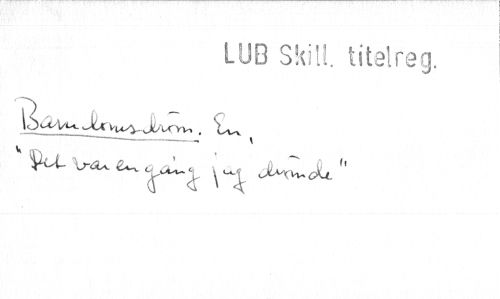 LUB Skill. titelreg.
Barndomsdröm. En,
"Det var en gång jag drömde"